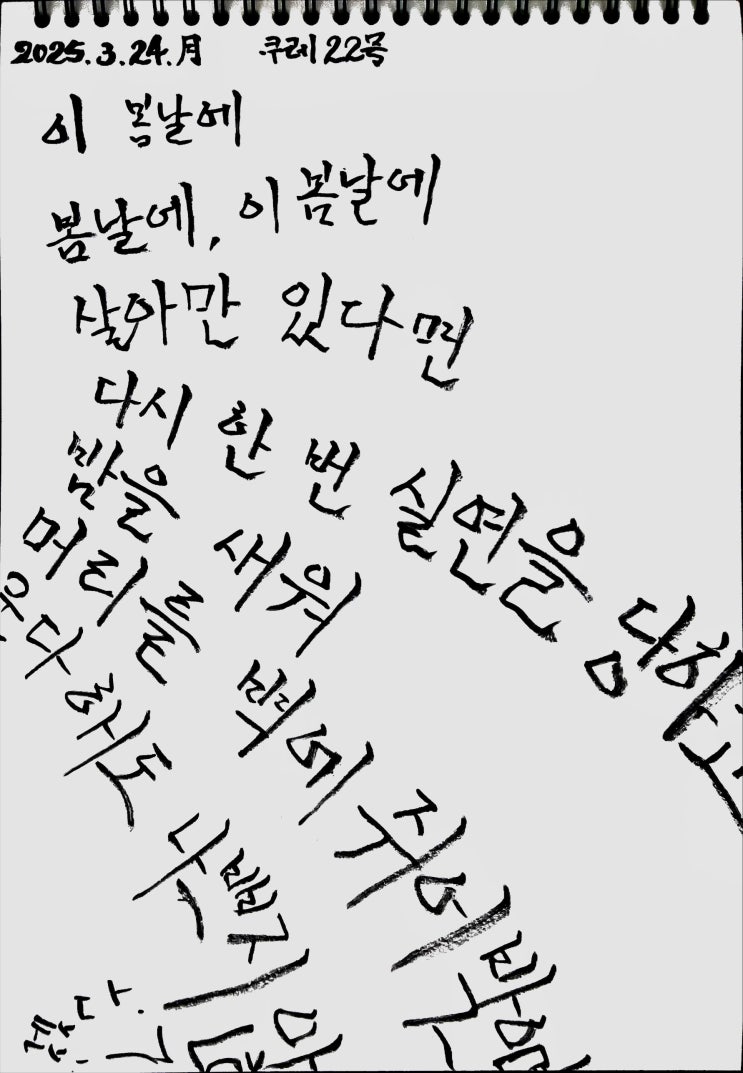 2025.3.24.月 쿠레 22목
이 봄날에
봄날에, 이 봄날에
살아만 있다면
다시 한 번 실연을 당하고
밤을 새워
머리를 벽에 쥐어박으며
운다 해도 나쁘지